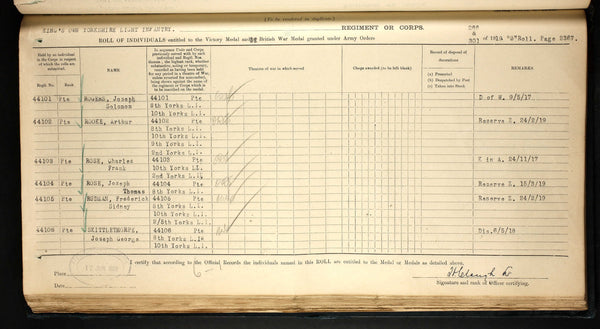 (To be rendered in duplicate)
KING'S OWN YORKSHIRE LIGHT INFANTRY. REGIMENT OR CORPS.
ROLL OF INDIVIDUALS entitled to the Victory Medal and British War Medal granted under Army Orders 266 & 301 of 1919 "B" Roll. Page 2367.
Held by an individual in the Corps in respect of which the rolls are submitted.
Regtl. No. Rank
NAME
Theatres of war in which served
Clasps awarded (to be left blank)
Record of disposal of decorations
(a) Presented
(b) Despatched by Post
(c) Taken into Stock
REMARKS
44101 Pte Joseph Solomon 44101 Pte D of W. 9/5/17
8th Yorks L.I.
10th Yorks L.I.
44102 Pte Arthur 44102 Pte Reserve Z. 24/2/19
8th Yorks L.I.
10th Yorks L.I.
9th Yorks L.I.
2nd Yorks L.I.
44103 Pte ROSE, Charles Frank 44103 Pte K in A. 24/11/17
10th Yorks L.I.
2nd Yorks L.I.
44104 Pte ROSE, Joseph Thomas 44104 Pte Reserve Z. 15/3/19
8th Yorks L.I.
44105 Pte Frederick Sidney 44105 Pte Reserve Z. 24/2/19
8th Yorks L.I.
10th Yorks L.I.
2/5th Yorks L.I.
44106 Pte SKITTLETHORPE, Joseph George 44106 Pte Dis. 6/5/18
8th Yorks L.I.
10th Yorks L.I.
I certify that according to the Official Records the individuals named in this ROLL are entitled to the Medal or Medals as detailed above.
Place
Date
Signature and rank of Officer certifying.